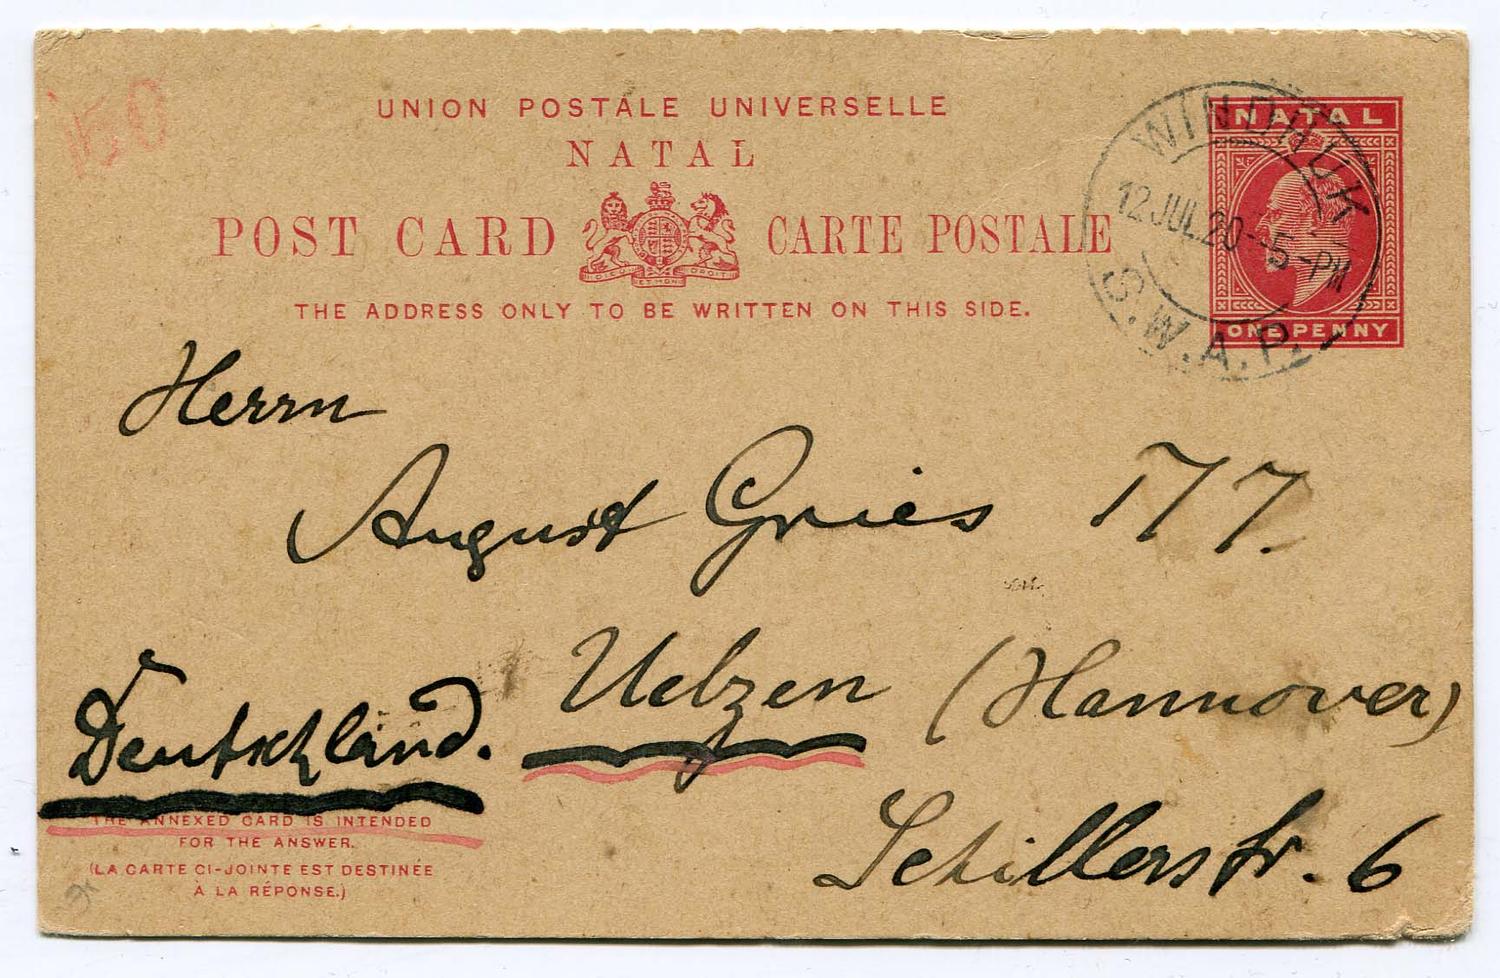 150
UNION POSTALE UNIVERSELLE
NATAL
POST CARD CARTE POSTALE
DIEU ET MON DROIT
THE ADDRESS ONLY TO BE WRITTEN ON THIS SIDE.
NATAL
ONE PENNY
WINDHUK
12 JUL 20 - 5 - PM
S.W.A.P.
Herrn
August Gries
Uelzen (Hannover)
Deutschland.
Schillerstr. 6
THE ANNEXED CARD IS INTENDED
FOR THE ANSWER.
(LA CARTE CI-JOINTE EST DESTINÉE
À LA RÉPONSE.)